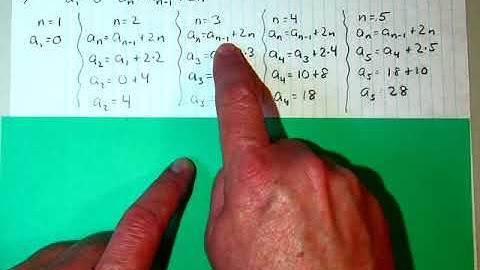 n=1
a₁=0
n=2
aₙ=aₙ₋₁+2n
a₂=a₁+2·2
a₂=0+4
a₂=4
n=3
aₙ=aₙ₋₁+2n
a₃=
a₃=
a₃=
n=4
aₙ=aₙ₋₁+2n
a₄=a₃+2·4
a₄=10+8
a₄=18
n=5
aₙ=aₙ₋₁+2n
a₅=a₄+2·5
a₅=18+10
a₅=28